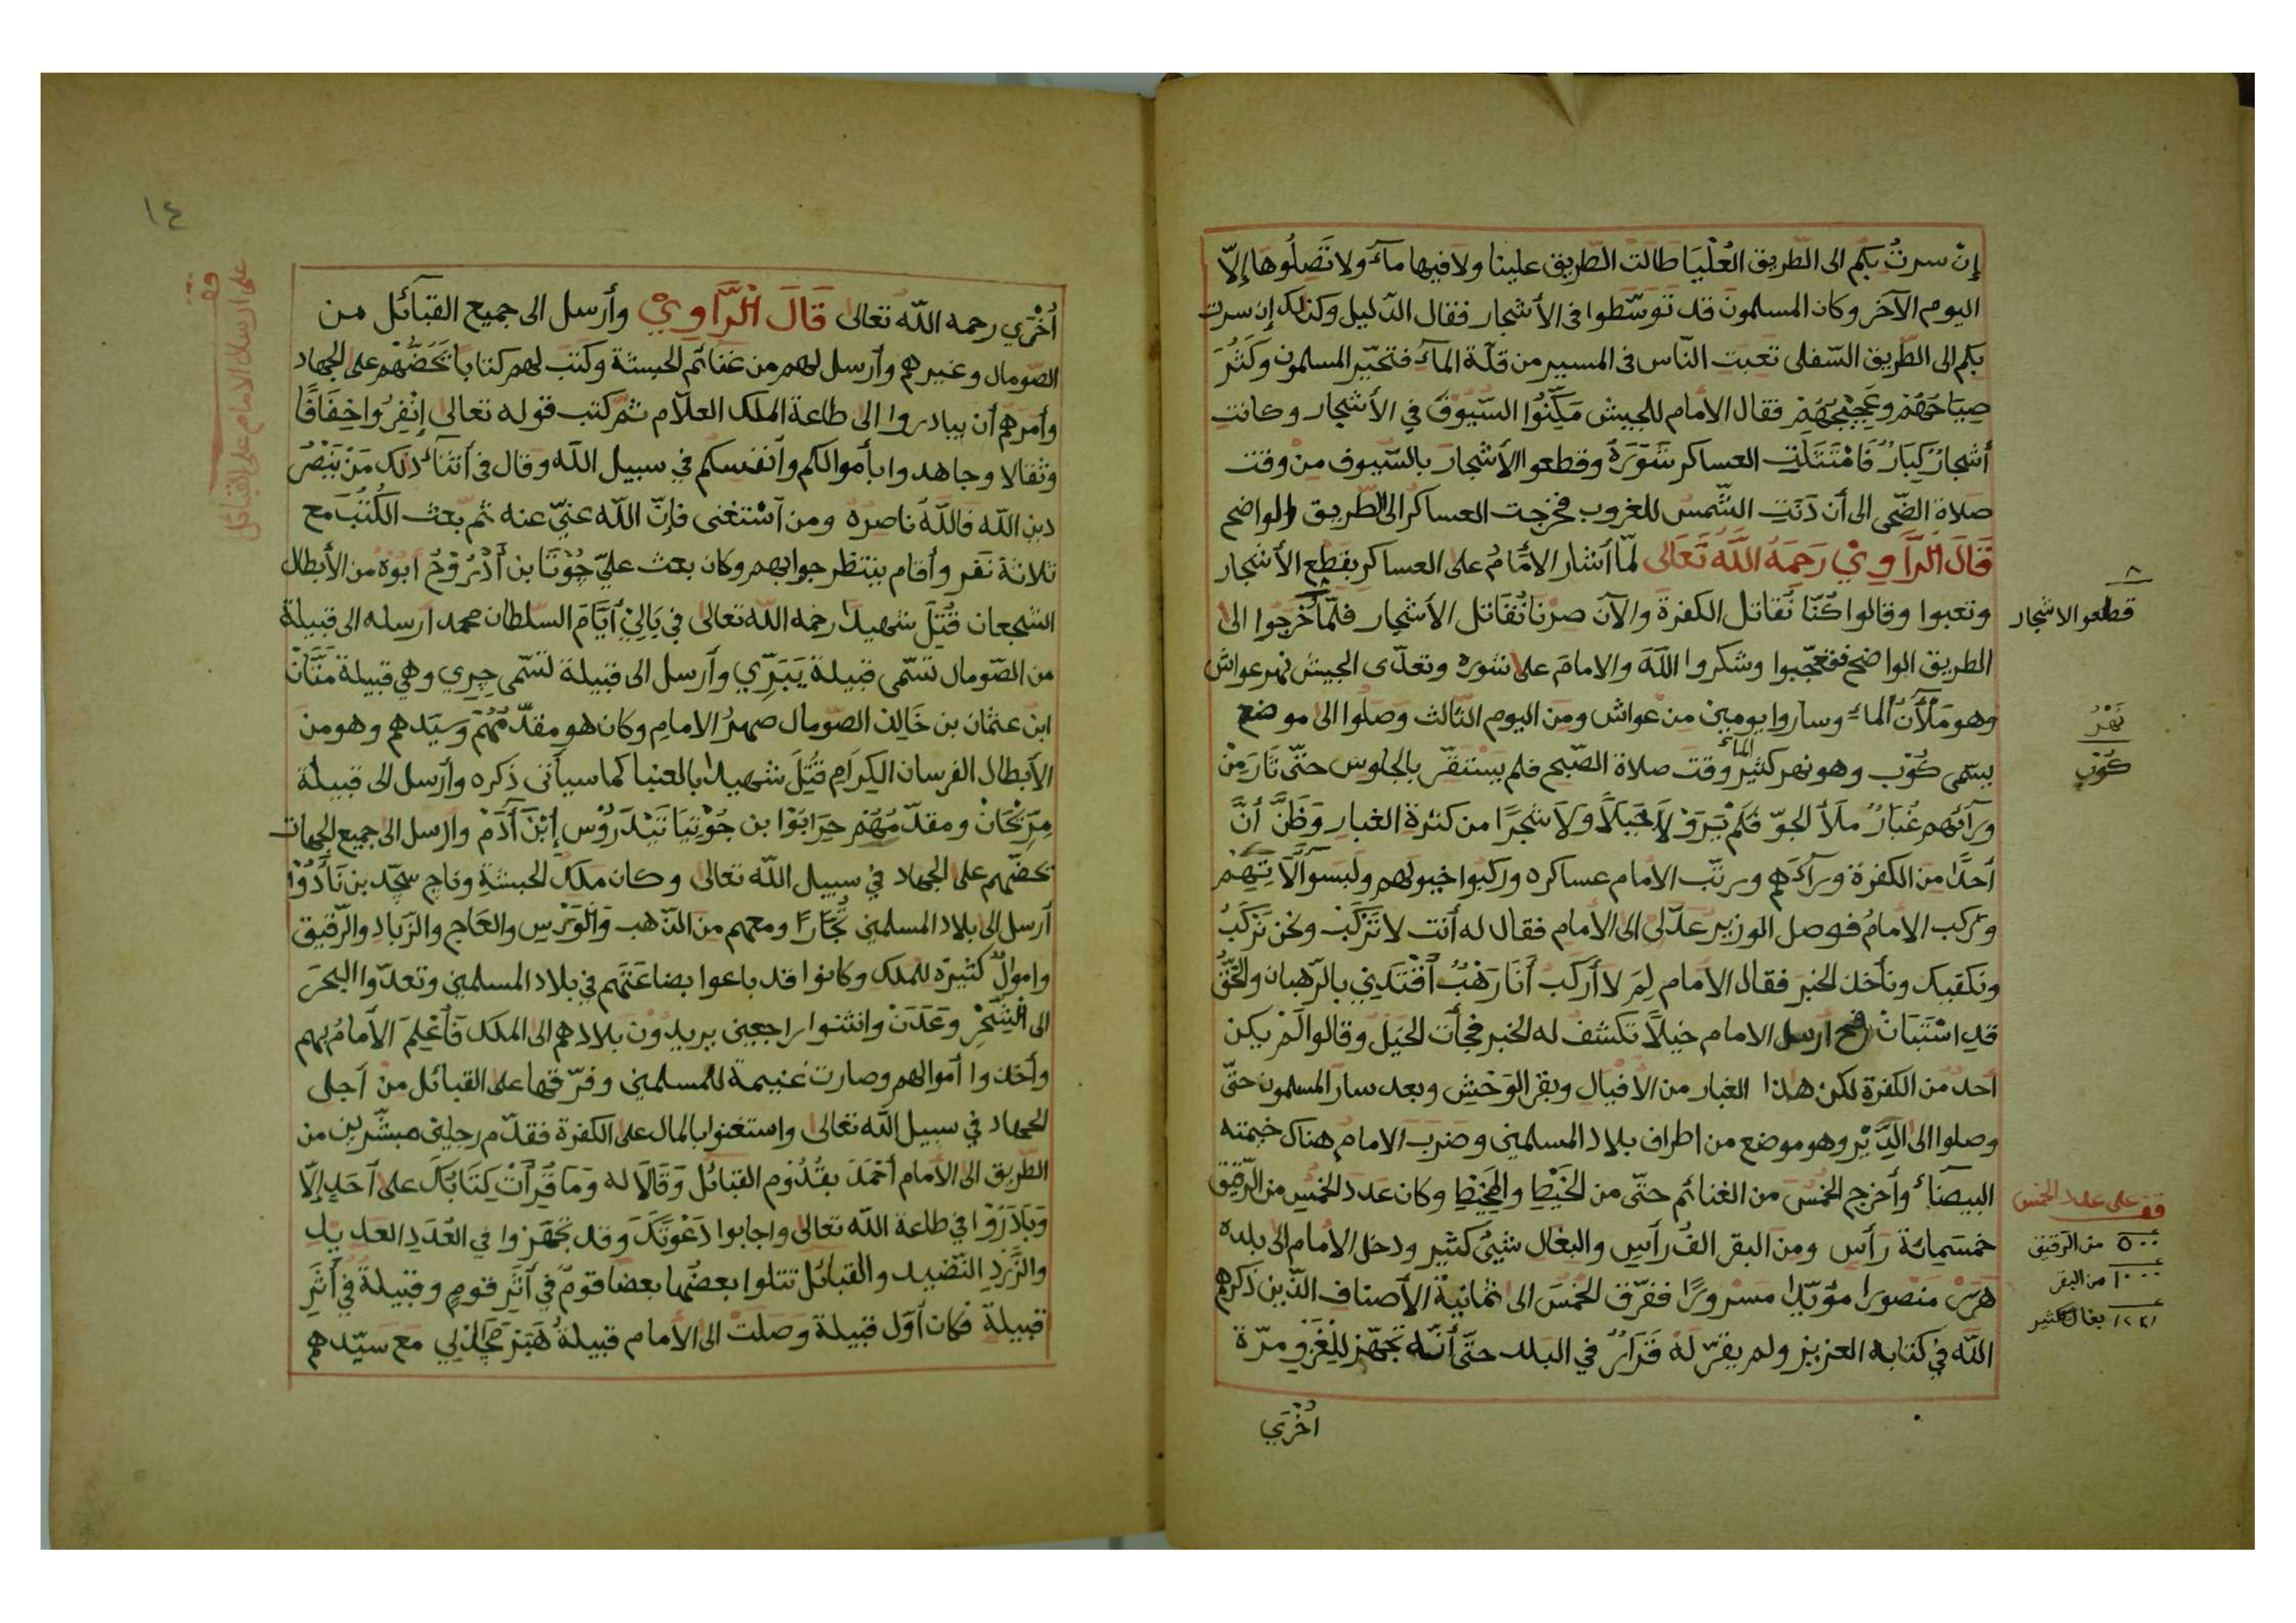 إنْ سرتُ بكم الى الطّريق العُلْيَا طالت الطّريق علينا ولا فيها مآء ولا تَصِلُوها إلّا
اليوم الآخر وكان المسلمون قد تَوَسَّطوا فى الأشجار فقال الدّليل وكذلك إن سرت
بكم الى الطّريق السّفلى تعبت النّاس فى المسير من قلّة المآء فتحيّر المسلمون وكَثُرَ
صِيَاحَهُمْ وعَجِيْجهُمْ فقال الامام للجيش مَكِّنُوا السّيُوفَ فِي الأشجار وكانت
أشجارٌ كِبَارٌ فَامْتَثَلَتِ العساكر شَوْرَهُ وقطعوا الأشجار بالسّيوف من وقت
صلاة الضّحى الى أن دَنَتِ الشّمسُ للغروب فخرجت العساكر الى الطّريق الواضح
قَالَ الرَّاوِيْ رَحِمَهُ اللّهُ تَعَالى لمّا أشار الامَامُ على العساكر بقطع الأشجار
وتعبوا وقالوا كُنّا نُقاتل الكفرة والآن صرنا نُقاتل الأشجار فلمّا خَرجوا الى
قطعوا الاشجار
الطريق الواضح فتعجّبوا وشكروا اللّهَ والامامَ على شوره وتعدّى الجيش نهر عواش
وهو مَلْآنُ الماء وساروا يومين من عواش ومن اليوم الثالث وصلوا الى موضع
نَهْرُ
يسمى كُوْبْ وهو نهر كثير الماء وقت صلاة الصّبح فلم يستقرّ بالجلوس حتّى ثَارَ مِنْ
كُوْبْ
ورآئهم غُبَارٌ ملَأ الجوّ فَلَمْ يَرَوْ لَا جَبَلًا ولَا شجرًا من كثرة الغبار وَظَنَّ أنَّ
أحدًا من الكفرة ورآءهم ورتّب الامام عساكره وركبوا خيولهم ولَبَسوا آلَاتِهِمْ
وركب الامامُ فوصل الوزير عدّلى الى الامام فقال له أنت لا تَرْكَبْ ونحن نَرْكَبُ
ونكفيك ونأخذ الخبر فقال الامام لِمَ لا أركَبْ أنَا
قد اسْتَبَانْ ارسل الامام خيلًا تكشف له الخبر فجأت الخيل وقالوا لَمْ يكن
احد من الكفرة لكن هذا الغبار من الافيال وبقر الوَحْش وبعد سارَ المسلمون حتّى
وصلوا الى الدَّيْر وهو موضع من اطراف بلاد المسلمين وضربَ الامام هناك خيمته
البيضآء وأخرج الخمُسَ من الغنائم حتّى من الخَيْطِ والمِخْيَطِ وكان عدد الخمُس من الرّقيق
قف على عدد الخمس
خمسَمِائة رَأسٍ ومن البقر الفُ رَأسٍ والبغال شيئ كثير ودخل الامام الى بلده
٥٠٠ من الرّقيق
١٠٠٠ من البقر
هَرَرْ منصورا مؤيّدا مسرورًا ففرّق الخمُسَ الى ثمانية الأصناف الذّين ذكرهم
بغال كثير
اللّه في كتابه العزيز ولم يقرّ لهُ قَرَارٌ في البلد حتّى أنّه تجهّز لِلْغَزْوِ مرّة
اُخْرَي
١٤
قف على ارسال الامام على القبائل
اُخْرَي رحمه اللّه تعالى قَالَ الرَّاوِيْ وأرسل الى جميع القبآئل من
الصّومال وغيرهم وأرسل لهم من غنائم الحبشة وكتب لهم كتابا يَحُضُّهُمْ على الجهاد
وأمَرهم أن يبادروا الى طاعة الملك العلّام ثمّ كتب قوله تعالى إنْفِرُوا خِفَافًا
وثقالا وجاهدوا بأموالكم وأنفسكم في سبيل اللّه وقال فى أثنآء ذلك مَنْ يَنْصُر
دين اللّه فاللّهُ ناصرُه ومن اسْتغنى فإنّ اللّه غنيّ عنه ثم بعث الكُتُبَ مع
ثلاثة نفر وأقام ينتظر جوابهم وكان بعث عليّ جُوْتَا بن أَدْرُوْحْ أبُوْهُ من الأبطال
الشجعان قُتِلَ شهيدا رحمه اللّه تعالى في بَالِيْ أيّامَ السلطان محمد ارسله الى قبيلة
من الصّومال تسمّى قبيلة يَبَرِّي وأرسل الى قبيلة تسمّى جِرِي وهي قبيلة مَتَّانْ
ابن عثمان بن خَالِد الصّومال صهرُ الامامِ وكان هو مقدّمُهُمْ وسَيّدهم وهو من
الأبطال الفرسان الكِرَامِ قُتِلَ شهيدًا بالعنبا كما سيأتى ذكره وأرسل الى قبيلة
مِرَّيْحَانْ ومقدّمُهُمْ حِرَابَوْا بن جُوْيتَا تَيْدَرُوْس إبْنَ أَدَمْ وارسل الى جميع الجهات
يحضّهم على الجهاد في سبيل اللّه تعالى وكان ملك الحبشةِ وناج سجّد بن نَأدُوْا
أرسل الى بلاد المسلمين تُجّارًا ومعهم من الذّهب والوَرَسِ والعَاجِ والزَّبَادِ والرّقيق
واموالٌ كثيرَه للملك وكانوا قد باعوا بضاعَتَهم في بلاد المسلمين وتعدّوا البحرَ
الى الشِّحْر وعَدَنْ وانثنوا راجعين يريدُوْن بلادهم الى الملك فأعْلِمَ الامامُ بهم
وأخذوا أموالهم وصارت غنيمة للمسلمين وفرّقها على القبائل من أجل
الجهاد في سبيل اللّه تعالى واستغنوا بالمال على الكفرة فقدّم رجلين مبشّرين من
الطّريق الى الامام أحْمَدَ بقُدُوْمِ القبائل وقَالَا له وَمَا قَرَأتْ كِتَابُكَ على أحَدٍ إلّا
وَبَادَرُوْا في طاعة اللّه تعالى واجابوا دَعْوَتَكَ وقد تَجَهّزوا في العَدَدِ العديد
والزَّرَدِ النّضيد والقبائل تتلوا بعضُها بعضًا قومٌ في أثَرِ قومٍ وقبيلةٌ في أثَرِ
قبيلة فكان أوّل قبيلة وصلتْ الى الامام قبيلةُ هَبَرْ مَجْدِي مع سيّدهم